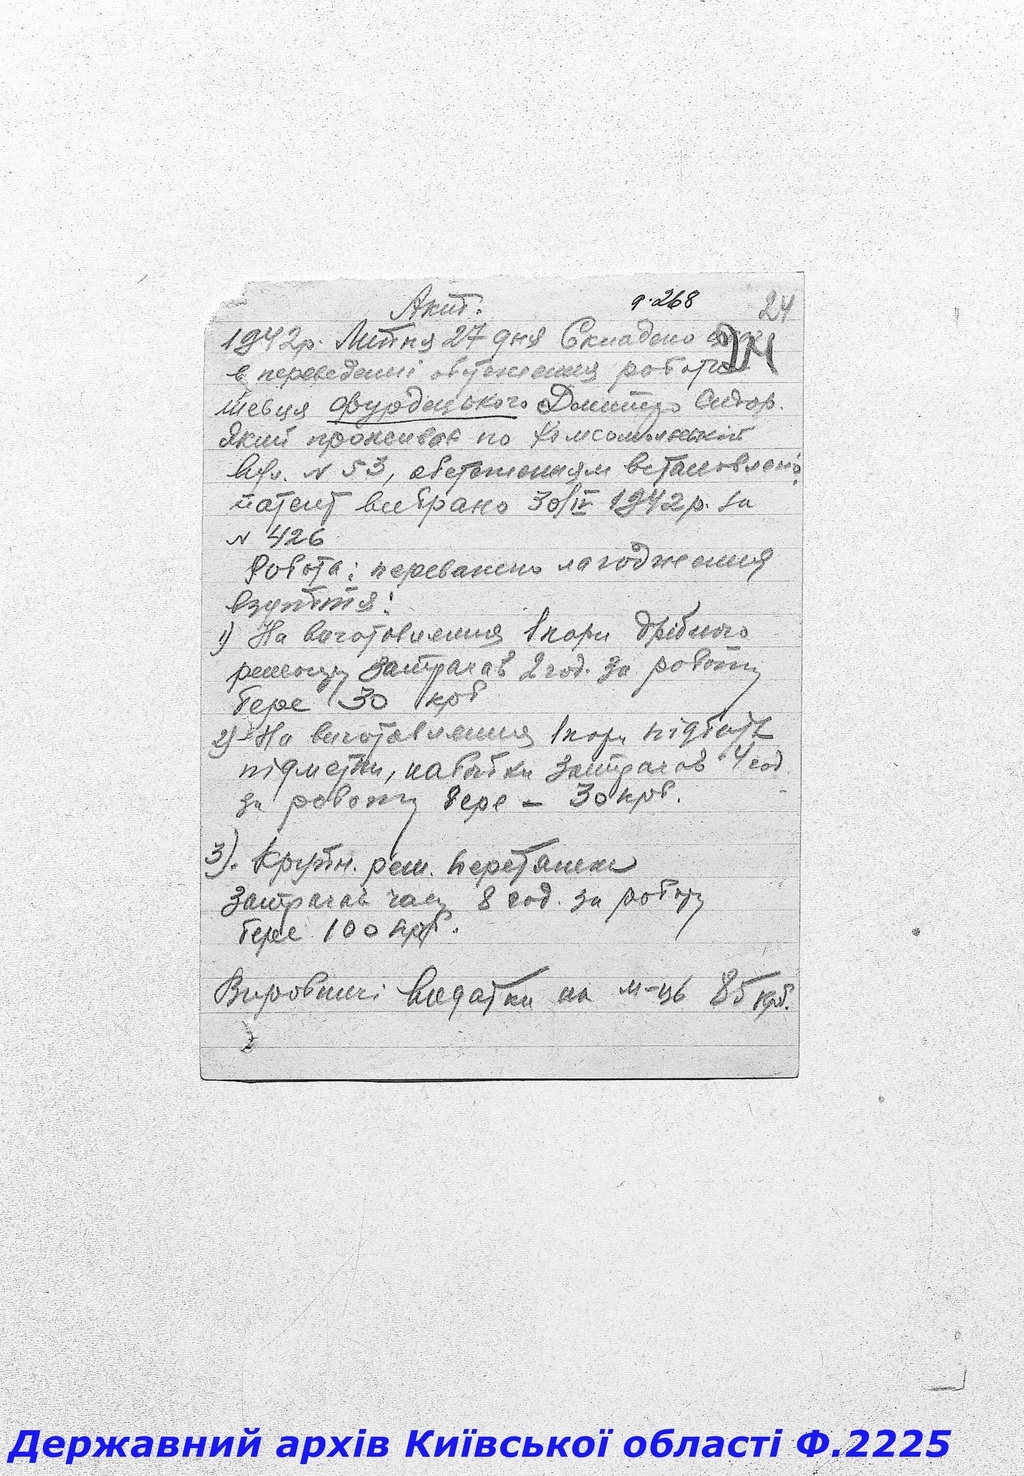 Акт.
д. 268
24
1942 р. Липня 27 дня Складено акт
24
в переведенні обстеження роботи
шевця Фурдецького Дмитро Сидор.
який проживає по Комсомольській
вул. N 53, обстеженням встановлено,
патент вибрано 30/IV 1942 р. за
N 426
Робота: переважно лагодження
взуття:
1) На виготовлення 1 пари дрібного
ремонту затрачав 2 год. за роботу
бере 30 крб
2) На виготовлення 1 пари підбить
підметки, набойки затрачав 4 год.
за роботу бере – 30 крб.
3). Крупн. рем. перетяжки
Затрачав часу 8 год. за роботу
бере 100 крб.
Виробничі видатки на м-ць 85 крб.
Державний архів Київської області Ф.2225